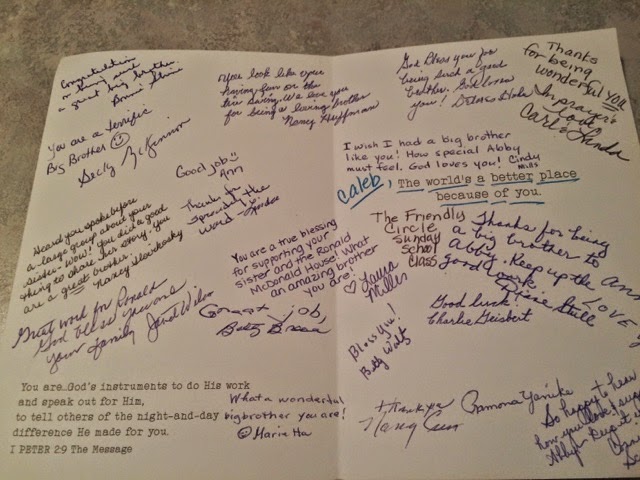 Congratulations
on being such
a great big brother.
You are a terrific
Big Brother ☺
Becky McKinnon
Good job
Ann
Thanks for
spreading the
word
Heard you spoke before
a large group about your
sister. Wow! You did a good
thing to share her story. You
are a great brother.
Nancy
Great work for Ronald
God bless you and
your family Janet
You look like you're
having fun on the
tire swing. We love you
for being a loving brother
Nancy Huffman
You are a true blessing
for supporting your
sister and the Ronald
McDonald House! What
an amazing brother
you are!
♡ Laura
Miller
Great job,
Betty
You are…God's instruments to do His work
and speak out for Him,
to tell others of the night-and-day
difference He made for you.
I PETER 2:9 The Message
What a wonderful
big brother you are!
☺ Maria
God bless you for
being such a good
brother. God loves
you!
Thanks
for being
wonderful YOU
In prayers
Love
Carl & Linda
I wish I had a big brother
like you! How special Abby
must feel. God loves you! Cindy
Caleb, The world's a better place
because of you.
The Friendly
Circle
Sunday
School
Class
Thanks for being
a big brother to
Abby. Keep up the
good work.
Diane Still
LOVE
Good luck!
Charlie Geisbert
Bless you!
Betty Waltz
Thank you
Nancy
Ramona
So happy to hear
how you love & supp
Abby. Keep it up!